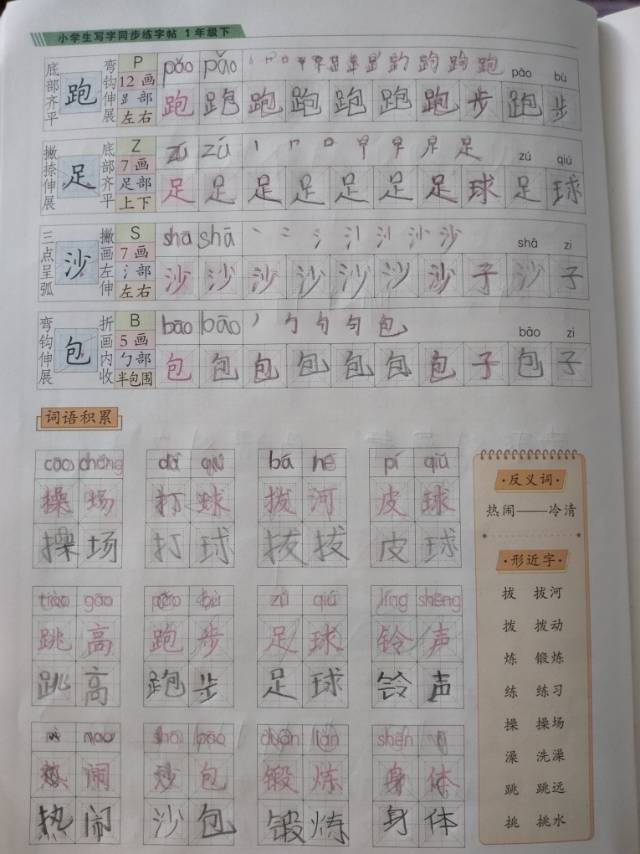 小学生写字同步练字帖 1年级下
底部齐平 跑 弯钩伸展 P 12 画 部 左右 pǎo pǎo pǎo bù
跑 跑 跑 跑 跑 跑 跑 步 跑 步
撇捺伸展 足 底部齐平 Z 7 画 足 部 上下 zú zú zú qiú
足 足 足 足 足 足 足 球 足 球
三点呈弧 沙 撇画左伸 S 7 画 氵部 左右 shā shā shā zi
沙 沙 沙 沙 沙 沙 沙 子 沙 子
弯钩伸展 包 折画内收 B 5 画 勹部 半包围 bāo bāo bāo zi
包 包 包 包 包 包 包 子 包 子
词语积累
cāo chǎng dǎ qiú bá hé pí qiú
操场 打球 拔河 皮球
操场 打球 拔拔 皮球
tiào gāo pǎo bù zú qiú líng shēng
跳高 跑步 足球 铃声
跳高 跑步 足球 铃声
nao shā bāo duàn liàn shēn
热闹 沙包 锻炼 身体
热闹 沙包 锻炼 身体
·反义词·
热闹——冷清
·形近字·
拔 拔河
拨 拨动
炼 锻炼
练 练习
操 操场
澡 洗澡
跳 跳远
挑 挑水